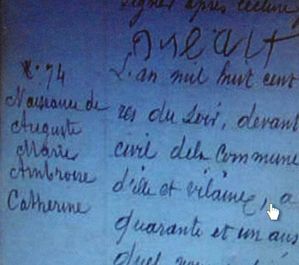 signé après lecture
N°. 74
Naissance de
Auguste
Marie
Ambroise
Catherine
L'an mil huit cent
res du soir, devant
civil de la Commune
d'ille et vilaine, a
quarante et un ans
quel